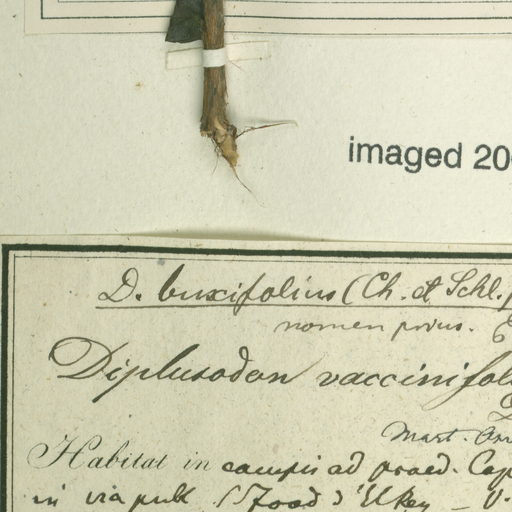 imaged 20
D. buxifolius (Ch. et Schl.
nomen prius.
Diplusodon vaccinifol
Mart.
Habitat in campis ad praed. Cap
in via publ.